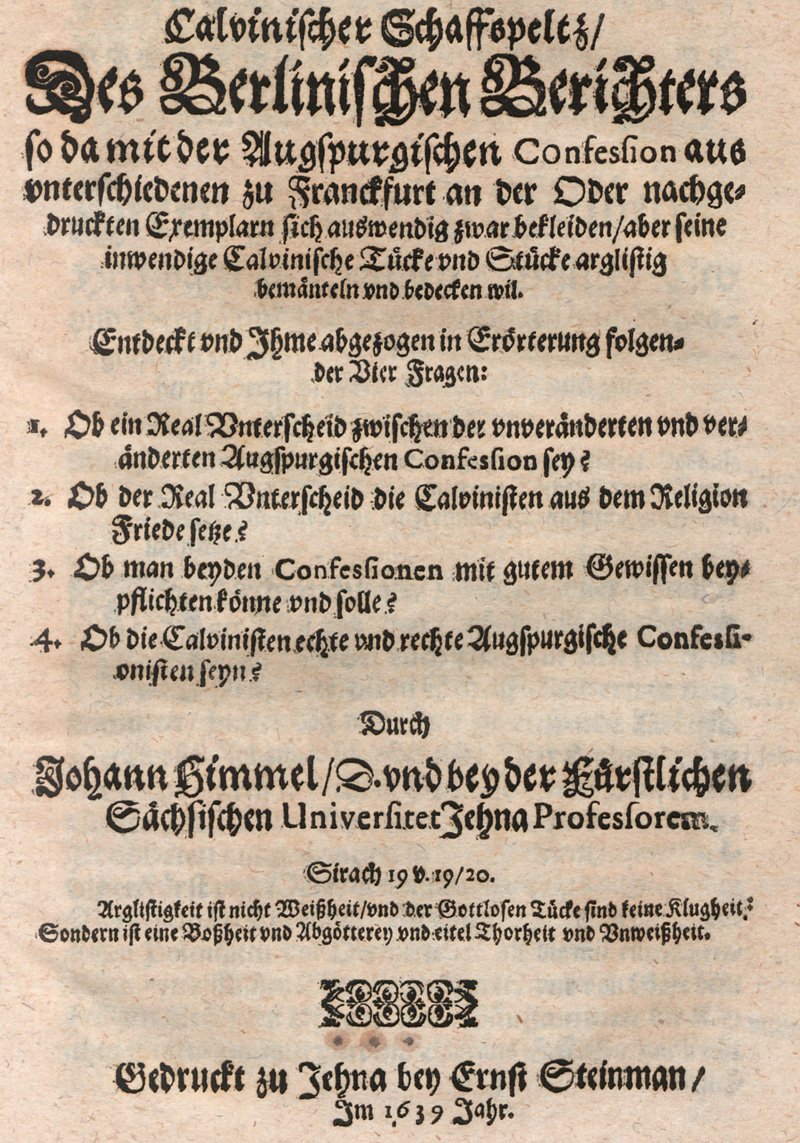 Calvinischer Schaffspeltz/
Des Berlinischen Berichters
so da mit der Augspurgischen Confession aus
vnterschiedenen zu Franckfurt an der Oder nachge-
druckten Exemplarn sich auswendig zwar bekleiden/aber seine
inwendige Calvinische Tücke vnd Stücke arglistig
bemänteln vnd bedecken wil.
Entdeckt vnd Ihme abgezogen in Erörterung folgen-
der Vier Fragen:
1. Ob ein Real Vnterscheid zwischen der vnveränderten vnd ver-
änderten Augspurgischen Confession sey?
2. Ob der Real Vnterscheid die Calvinisten aus dem Religion
Friede setze?
3. Ob man beyden Confessionen mit gutem Gewissen bey-
pflichten könne vnd solle?
4. Ob die Calvinisten echte vnd rechte Augspurgische Confessi-
onisten seyn?
Durch
Johann Himmel/D. vnd bey der Fürstlichen
Sächsischen Universitet Jehna Professorem.
Sirach 19 v. 19/20.
Arglistigkeit ist nicht Weißheit/vnd der Gottlosen Tücke sind keine Klugheit:
Sondern ist eine Boßheit vnd Abgötterey vnd eitel Thorheit vnd Vnweißheit.
Gedruckt zu Jehna bey Ernst Steinman/
Im 1639 Jahr.